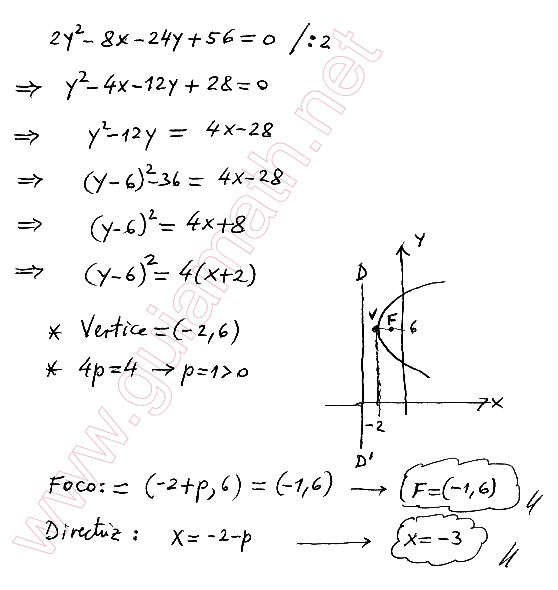 2y² - 8x - 24y + 56 = 0 /:2
⇒ y² - 4x - 12y + 28 = 0
⇒ y² - 12y = 4x - 28
⇒ (y-6)² - 36 = 4x - 28
⇒ (y-6)² = 4x + 8
⇒ (y-6)² = 4(x+2)
* Vertice = (-2, 6)
* 4p = 4 → p = 1 > 0
Y
D
V F 6
X
-2
D'
Foco: = (-2+p, 6) = (-1, 6) → F = (-1, 6)
Directriz: X = -2-p → X = -3
www.guiamath.net